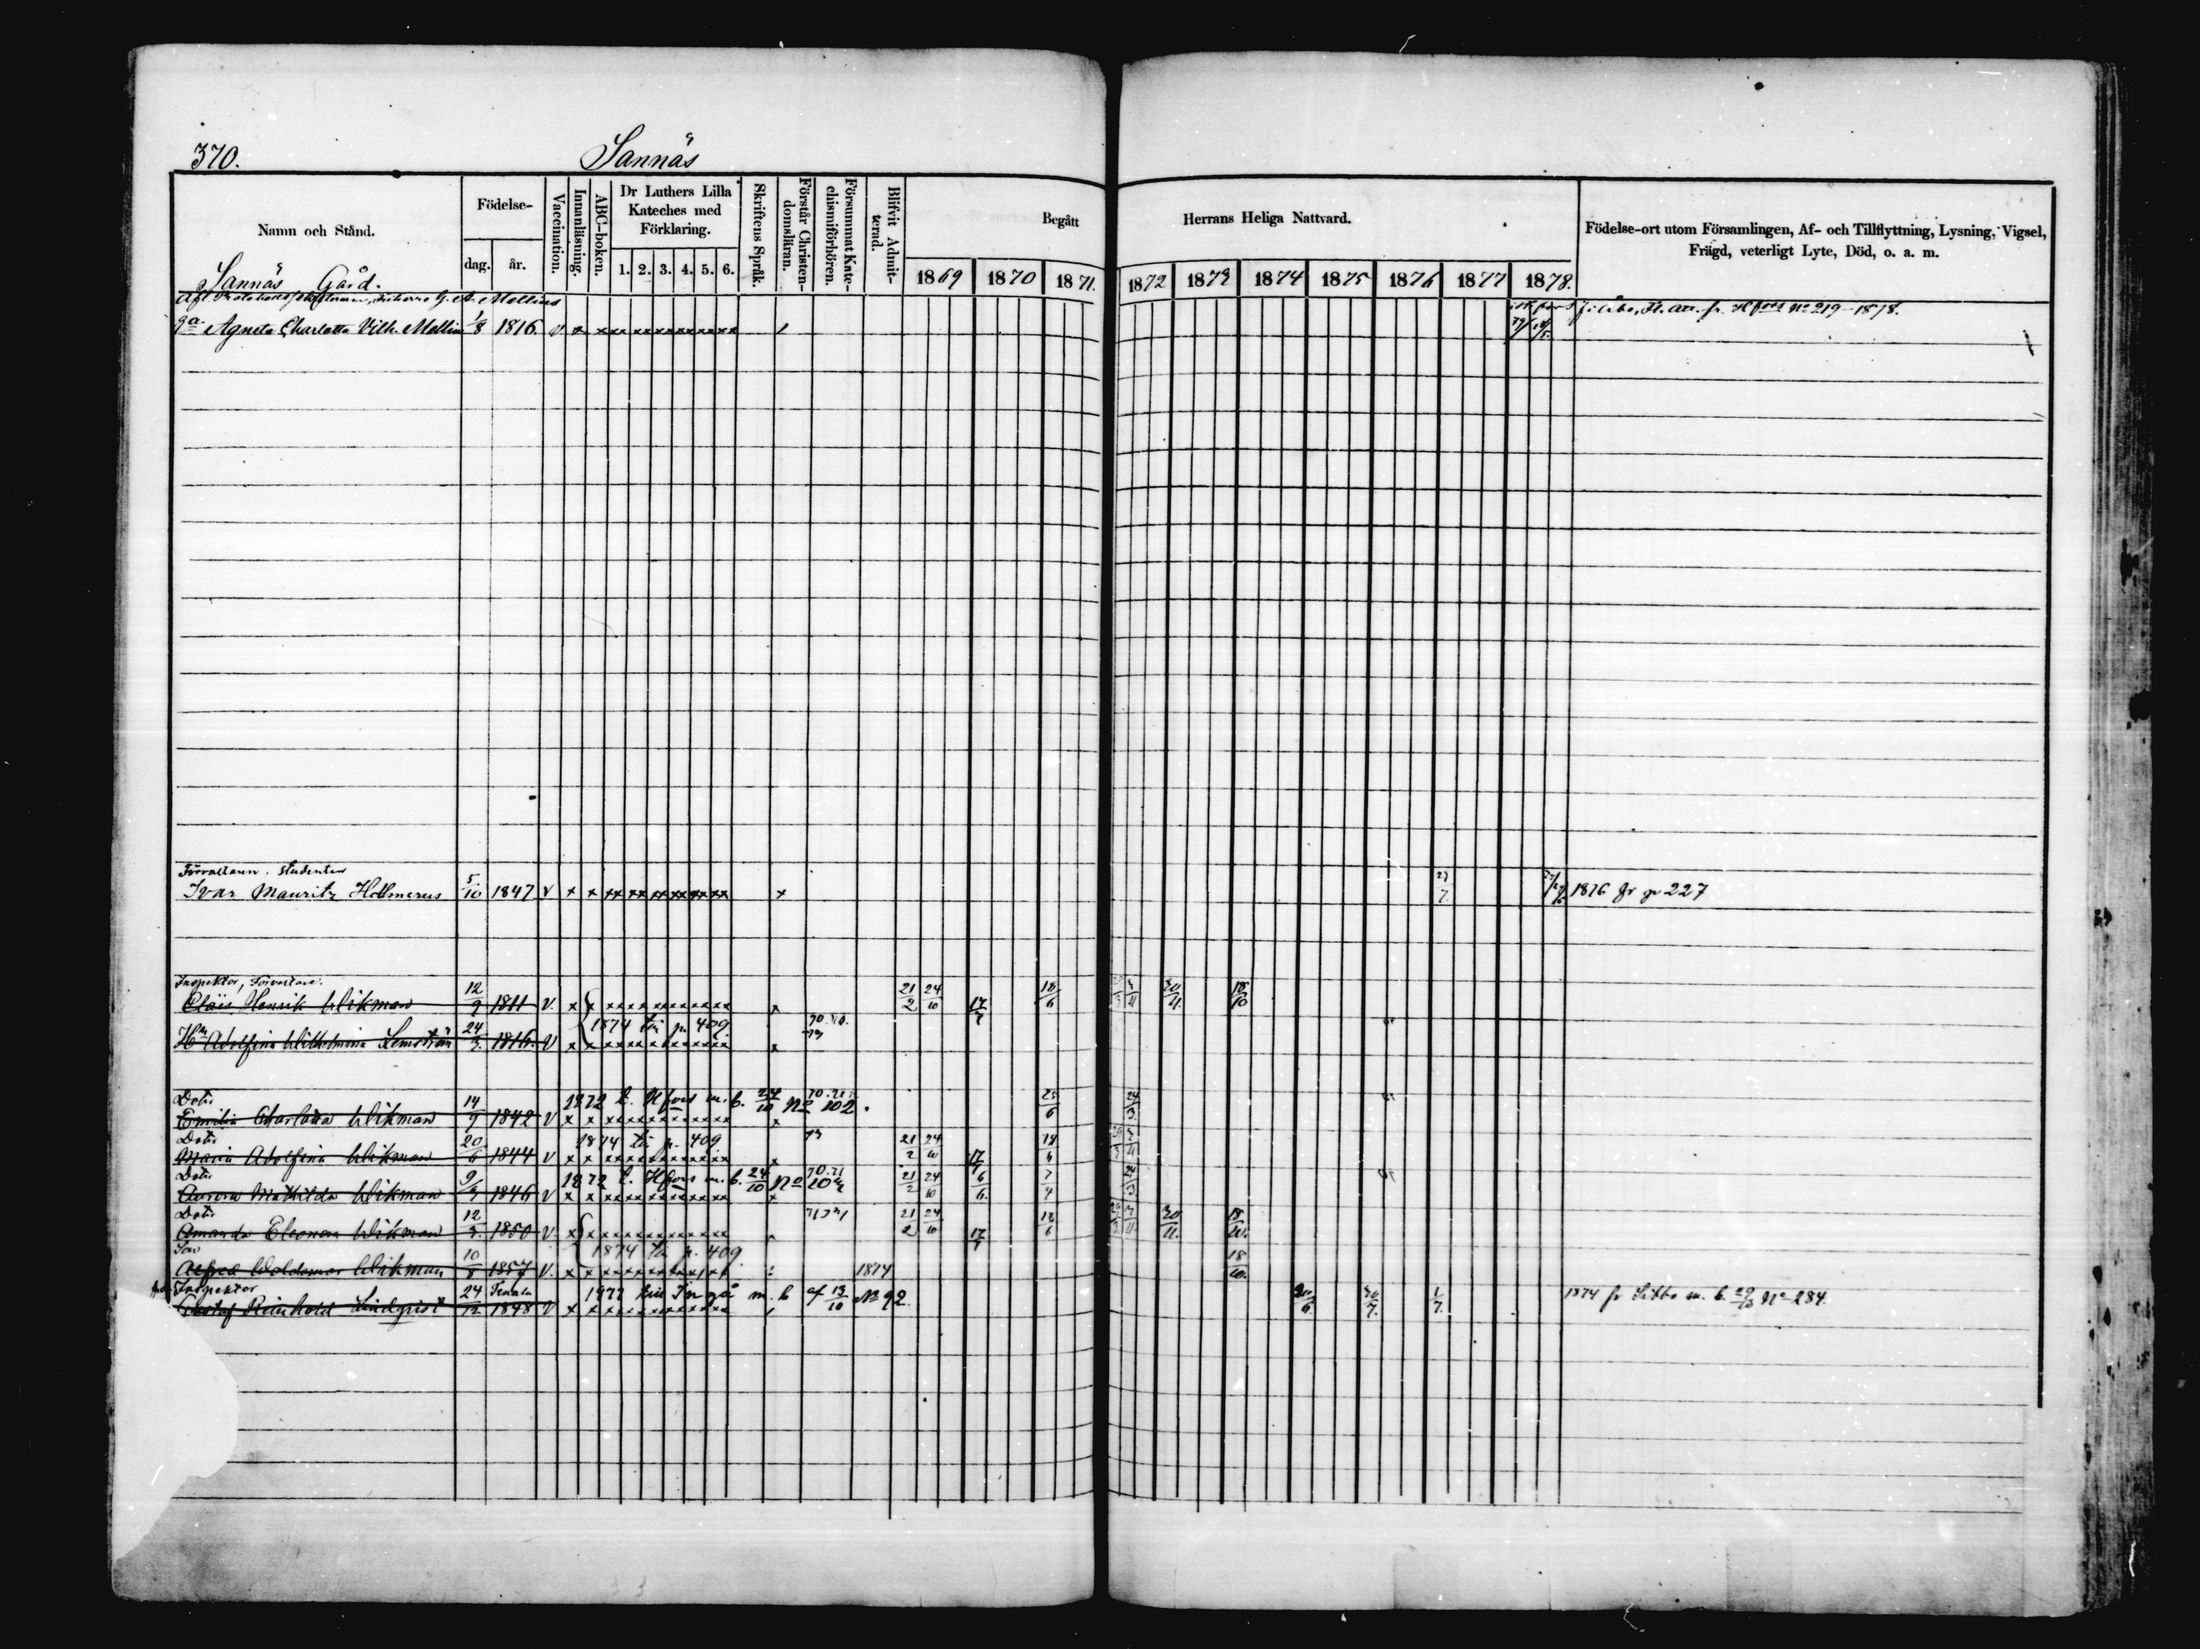 370.
Sannäs
Namn och Stånd.
Födelse-
dag. år.
Vaccination.
Innanläsning.
ABC-boken.
Dr Luthers Lilla
Kateches med
Förklaring.
1. 2. 3. 4. 5. 6.
Skriftens Språk.
Förstår Christen-
domsläran.
Försummat Kate-
chismiförhören.
Blifvit Admit-
terad.
Begått
Herrans Heliga Nattvard.
1869 1870 1871. 1872 1873 1874 1875 1876 1877 1878.
Födelse-ort utom Församlingen, Af- och Tillflyttning, Lysning, Vigsel,
Frägd, veterligt Lyte, Död, o. a. m.
Sannäs Gård.
G. A. Mellins
Agneta Charlotta Vilh. Mellin 1/8 1816. v No 219-1878.
Studenten
Ivar Mauritz Holmerus 5/10 1847 v 1876 fr p 227
Inspektor,
Claës Henrik Wikman 12/9 1811 V. 21/2 24/10 17/7 18/6 30/11. 18/10
1874 till p. 409
Adolfina Wilhelmina 24/3. 1816. V
Dotr
Emilia Charlotta Wikman 14/9 1842 V 1872 t. Hfors m. b. 24/10 No 102. 24/3
Dotr
Maria Adolfina Wikman 20/6 1844 v 1874 till p. 409 21/2 24/10 17/7 18/6
Dotr
Aurora Mathilda Wikman 9/3 1846 V 1872 t. Hfors m. b. 24/10 No 21/2 24/10 6/6. 7/4 24/3
Dotr
Amanda Eleonora Wikman 12/3. 1850 V. 21/2 24/10 17/7 18/6 30/11. 18/10.
Son
Alfred Woldemar Wikman 10/8 1857 V. 1874 till p. 409 1874 18/10.
Inspektor
Gustaf Reinhold Lindqvist 24/12 Tenala 1848 V 1877 till Ingå m. b af 13/10 No 92. 30/7. 1/7. 1874 fr Sibbo m. b. No 284.